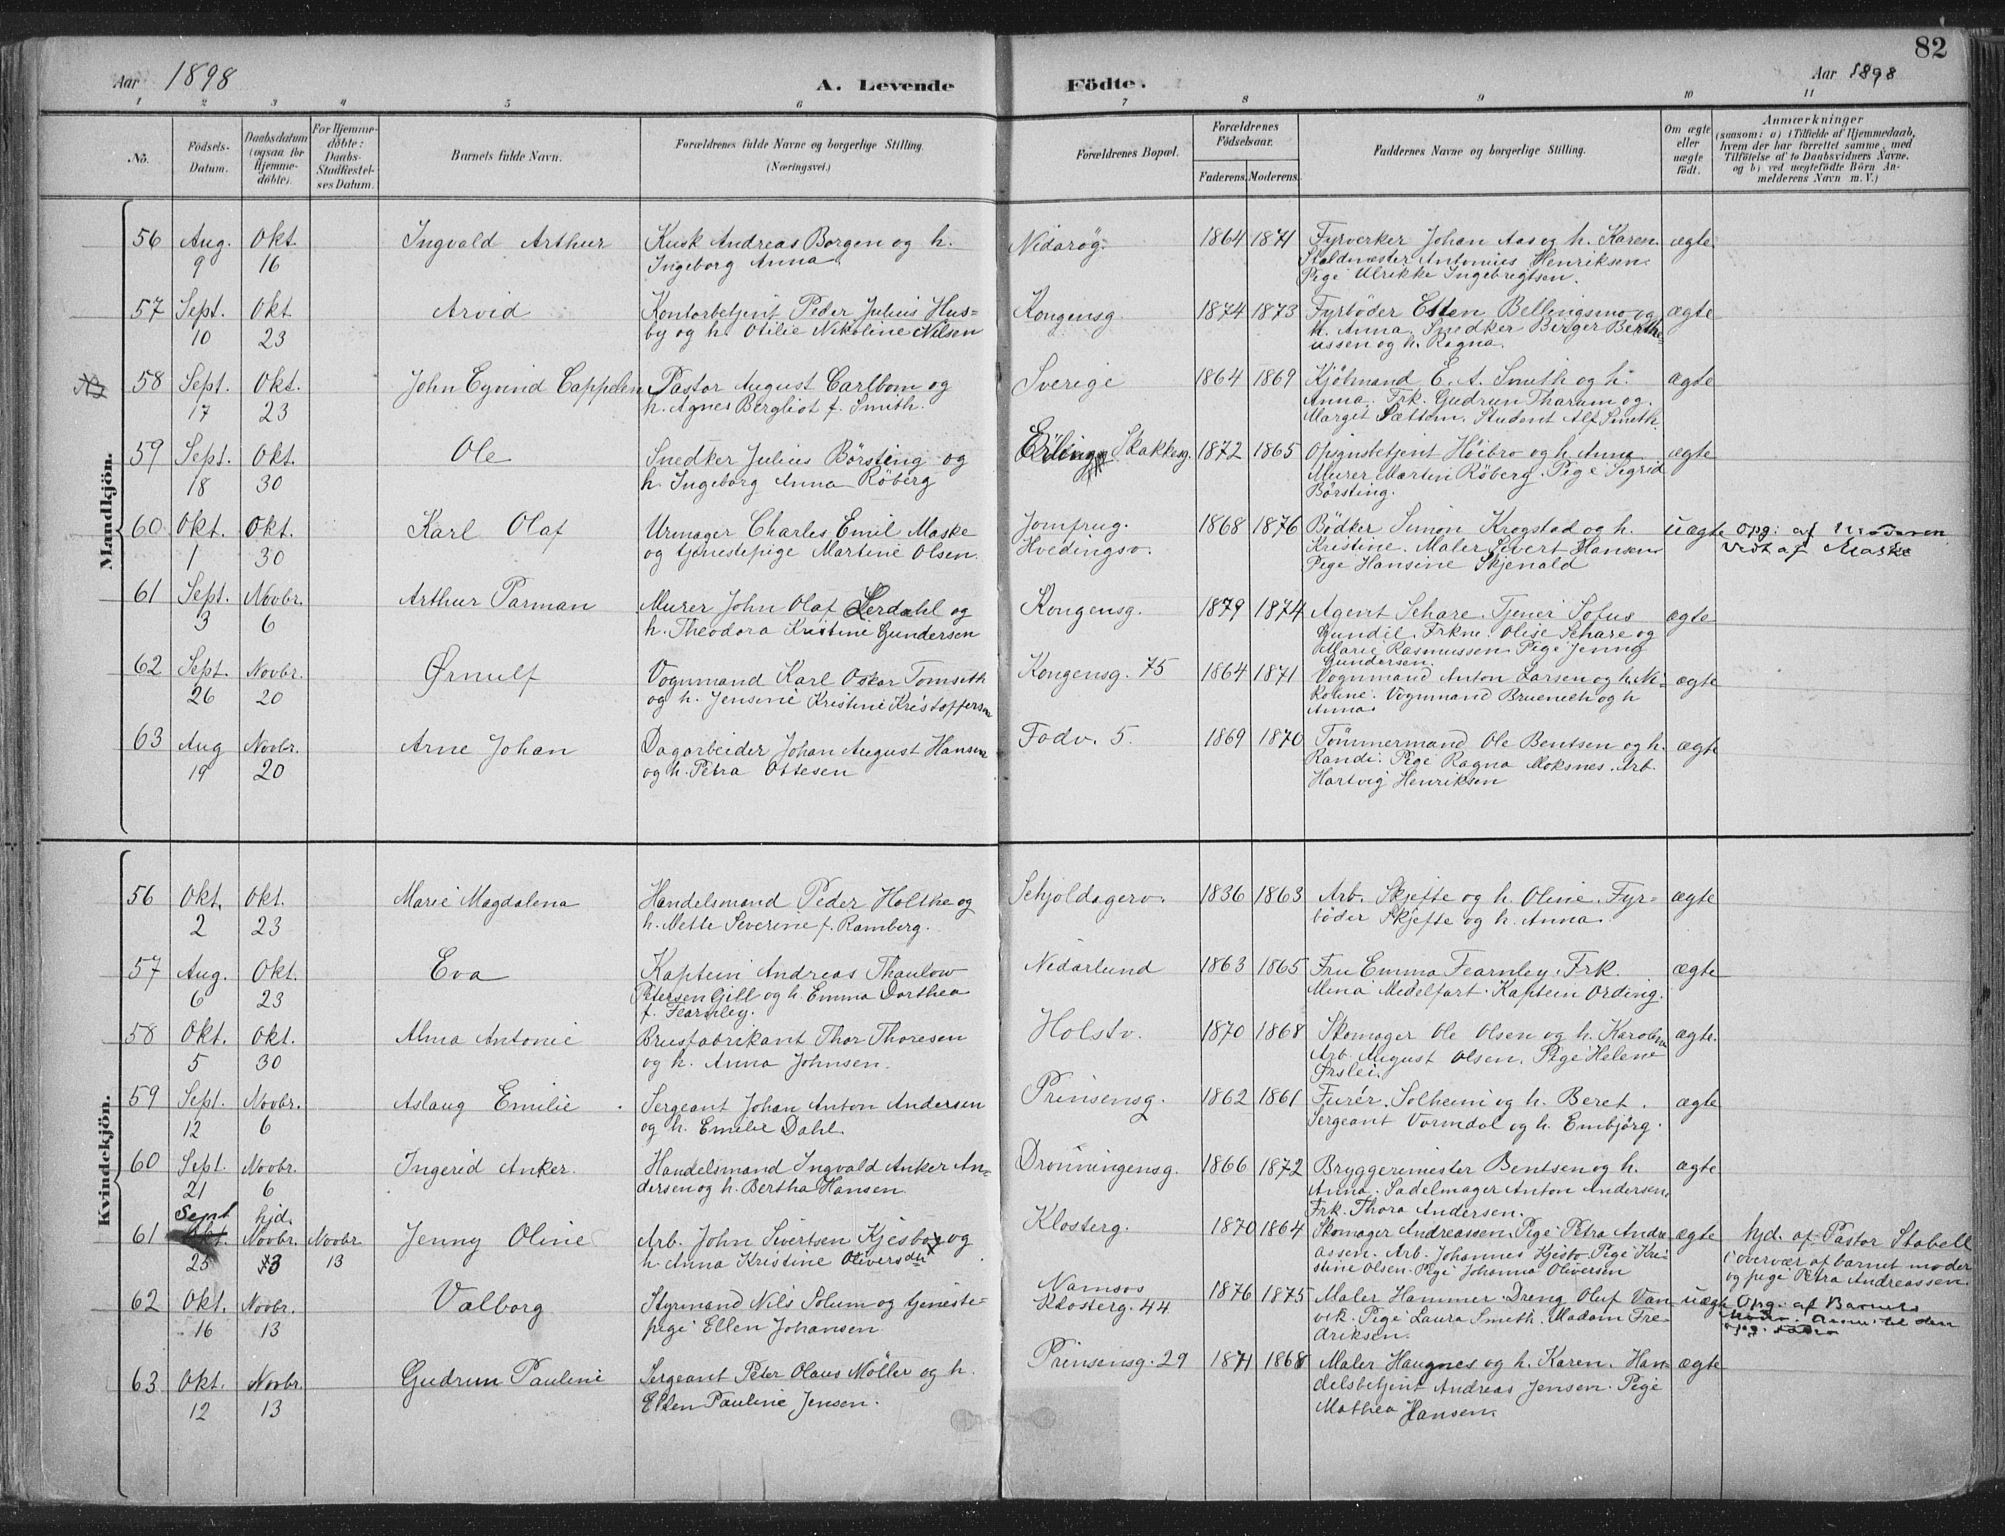 82
Aar 1898
A. Levende
Födte.
Aar 1898
1 2 3 4 5 6 7 8 9 10 11
No.
Födsels-
Datum.
Daabsdatum
(ogsaa for
Hjemme-
döbte).
For Hjemme-
döbte:
Daabs-
Stadfæstel-
ses Datum.
Barnets fulde Navn.
Forældrenes fulde Navne og borgerlige Stilling.
(Næringsvei.)
Forældrenes Bopæl.
Forældrenes
Födselsaar.
Faderens. Moderens.
Faddernes Navne og borgerlige Stilling.
Om ægte
eller
uægte
födt.
Anmærkninger
(saasom: a) i Tilfælde af Hjemmedaab,
hvem der har forrettet samme, med
Tilföielse af to Daabsvidners Navne.
og b) ved uægtefödte Börn An-
melderens Navn m. V.)
Mandkjön.
56 Aug. Okt. Ingvald Arthur Kusk Andreas Borgen og h. Nidarøg. 1864 1871 Fyrverker Johan Aas og h. Karen. ægte
9 16 Ingeborg Anna Staldmester Antonius Henriksen.
Pige Ulrikke Ingebregtsen.
57 Sept. Okt. Arvid Kontorbetjent Peder Julius Hus= Kongensg. 1874 1873 Fyrbøder Esten Bellingsmo og ægte
10 23 by og h. Otilie Nikoline Nilsen h. Anna. Snedker Berger Berthe
ussen og h. Ragna.
58 Sept. Okt. John Eyvind Cappelen Pastor August Carlbom og Sverige 1864 1869 Kjøbmand E. A. Smith og h. ægte
17 23 h. Agnes Bergliot f. Smith. Anna. Frk. Gudrun Tharum og
Margit Sættem. Student Alf Smith.
59 Sept. Okt. Ole Snedker Julius Börsting og Erling Skakkesg. 1872 1865 Opsynsbetjent Höibro og h. Anna ægte
18 30 h. Ingeborg Anna Röberg Murer Martin Röberg. Pige Sigrid
Börsting.
60 Okt. Okt. Karl Olaf Urmager Charles Emil Maske Jomfrug. 1868 1876 Bödker Simon Krogstad og h. uægte Opg. af Moderen
1 30 og tjenestepige Martine Olsen. Hvedingsv. Kristine. Maler Sivert Hansen vidt af Maske
Pige Hansine Skjenald
61 Sept. Novbr. Arthur Parman Murer John Olaf Lerdahl og Kongensg. 1879 1874 Agent Schare. Tjener Sofus ægte
3 6 h. Theodora Kristine Gundersen Gundil. Frkne. Olise Schare og
Marie Rasmussen Pige Jenny
Gundersen.
62 Sept. Novbr. Ørnulf Vognmand Karl Oskar Tomseth Kongensg. 75 1864 1871 Vognmand Anton Larsen og h. Ni- ægte
26 20 og h. Jensine Kristine Kristoffersen koline. Vognmand Bruenech og h
Anna.
63 Aug Novbr. Arne Johan Dagarbeider Johan August Hansen Fodv. 5. 1869 1870 Tömmermand Ole Bentsen og h. ægte
19 20 og h. Petra Ottesen Randi. Pige Ragna Moksnes. Arb.
Hartvig Henriksen
Kvindekjön.
56 Okt. Okt. Marie Magdalena Handelsmand Peder Holthe og Schjoldagerv. 1836 1863 Arb. Skjefte og h. Oline. Fyr= ægte
2 23 h. Mette Severine f. Ramberg. böder Skjefte og h. Anna.
57 Aug. Okt. Eva Kaptein Andreas Thaulow Nidarlund 1863 1865 Fru Emma Fearnley. Frk. ægte
6 23 Petersen Gill og h. Emma Dorthea Mina Medelfart. Kaptein Ording.
f. Fearnley.
58 Okt. Okt. Alma Antonie Brusfabrikant Thor Thoresen Holstv. 1870 1868 Skomager Ole Olsen og h. Karoline ægte.
5 30 og h. Anna Johnsen. Arb. August Olsen. Pige Helene
Ørslei.
59 Sept. Novbr. Aslaug Emilie Sergeant Johan Anton Andersen Prinsensg. 1862 1861 Furér. Solheim og h. Beret. ægte
12 6 og h. Emilie Dahl. Sergeant Vormdal og h. Embjörg.
60 Sept. Novbr. Ingerid Anker. Handelsmand Ingvald Anker An= Dronningensg. 1866 1872 Bryggerimester Bentsen og h. ægte
21 6 dersen og h. Bertha Hansen. Anna. Sadelmager Anton Andersen.
Frk. Thora Andersen.
Sept hjd.
61 Okt. Novbr. Novbr Jenny Oline Arb. John Sivertsen Kjesbo og Klosterg. 1870 1864 Skomager Andreassen. Pige Petra Andre ægte hjd. af Pastor Stabell
25 13 13 h. Anna Kristine Oliversdtr assen. Arb. Johannes Kjesbo Pige Kri= i overvær af barnet moder
stine Olsen. Pige Johanna Oliversen og pige Petra Andreassen.
62 Okt. Novbr. Valborg Styrmand Nils Solum og tjeneste= Namsos 1876 1875 Maler Hammer. Dreng Oluf Van= uægte Opg. af Barnets
16 13 pige Ellen Johansen Klosterg. 44 vik. Pige Laura Smith. Madam Fre
driksen.
63 Okt. Novbr. Gudrun Pauline Sergeant Peter Olaus Möller og h. Prinsensg. 29 1871 1868 Maler Haugnes og h. Karen. Han= ægte
12 13 Ellen Pauline Jensen. delsbetjent Andreas Jensen. Pige
Mathea Hansen.